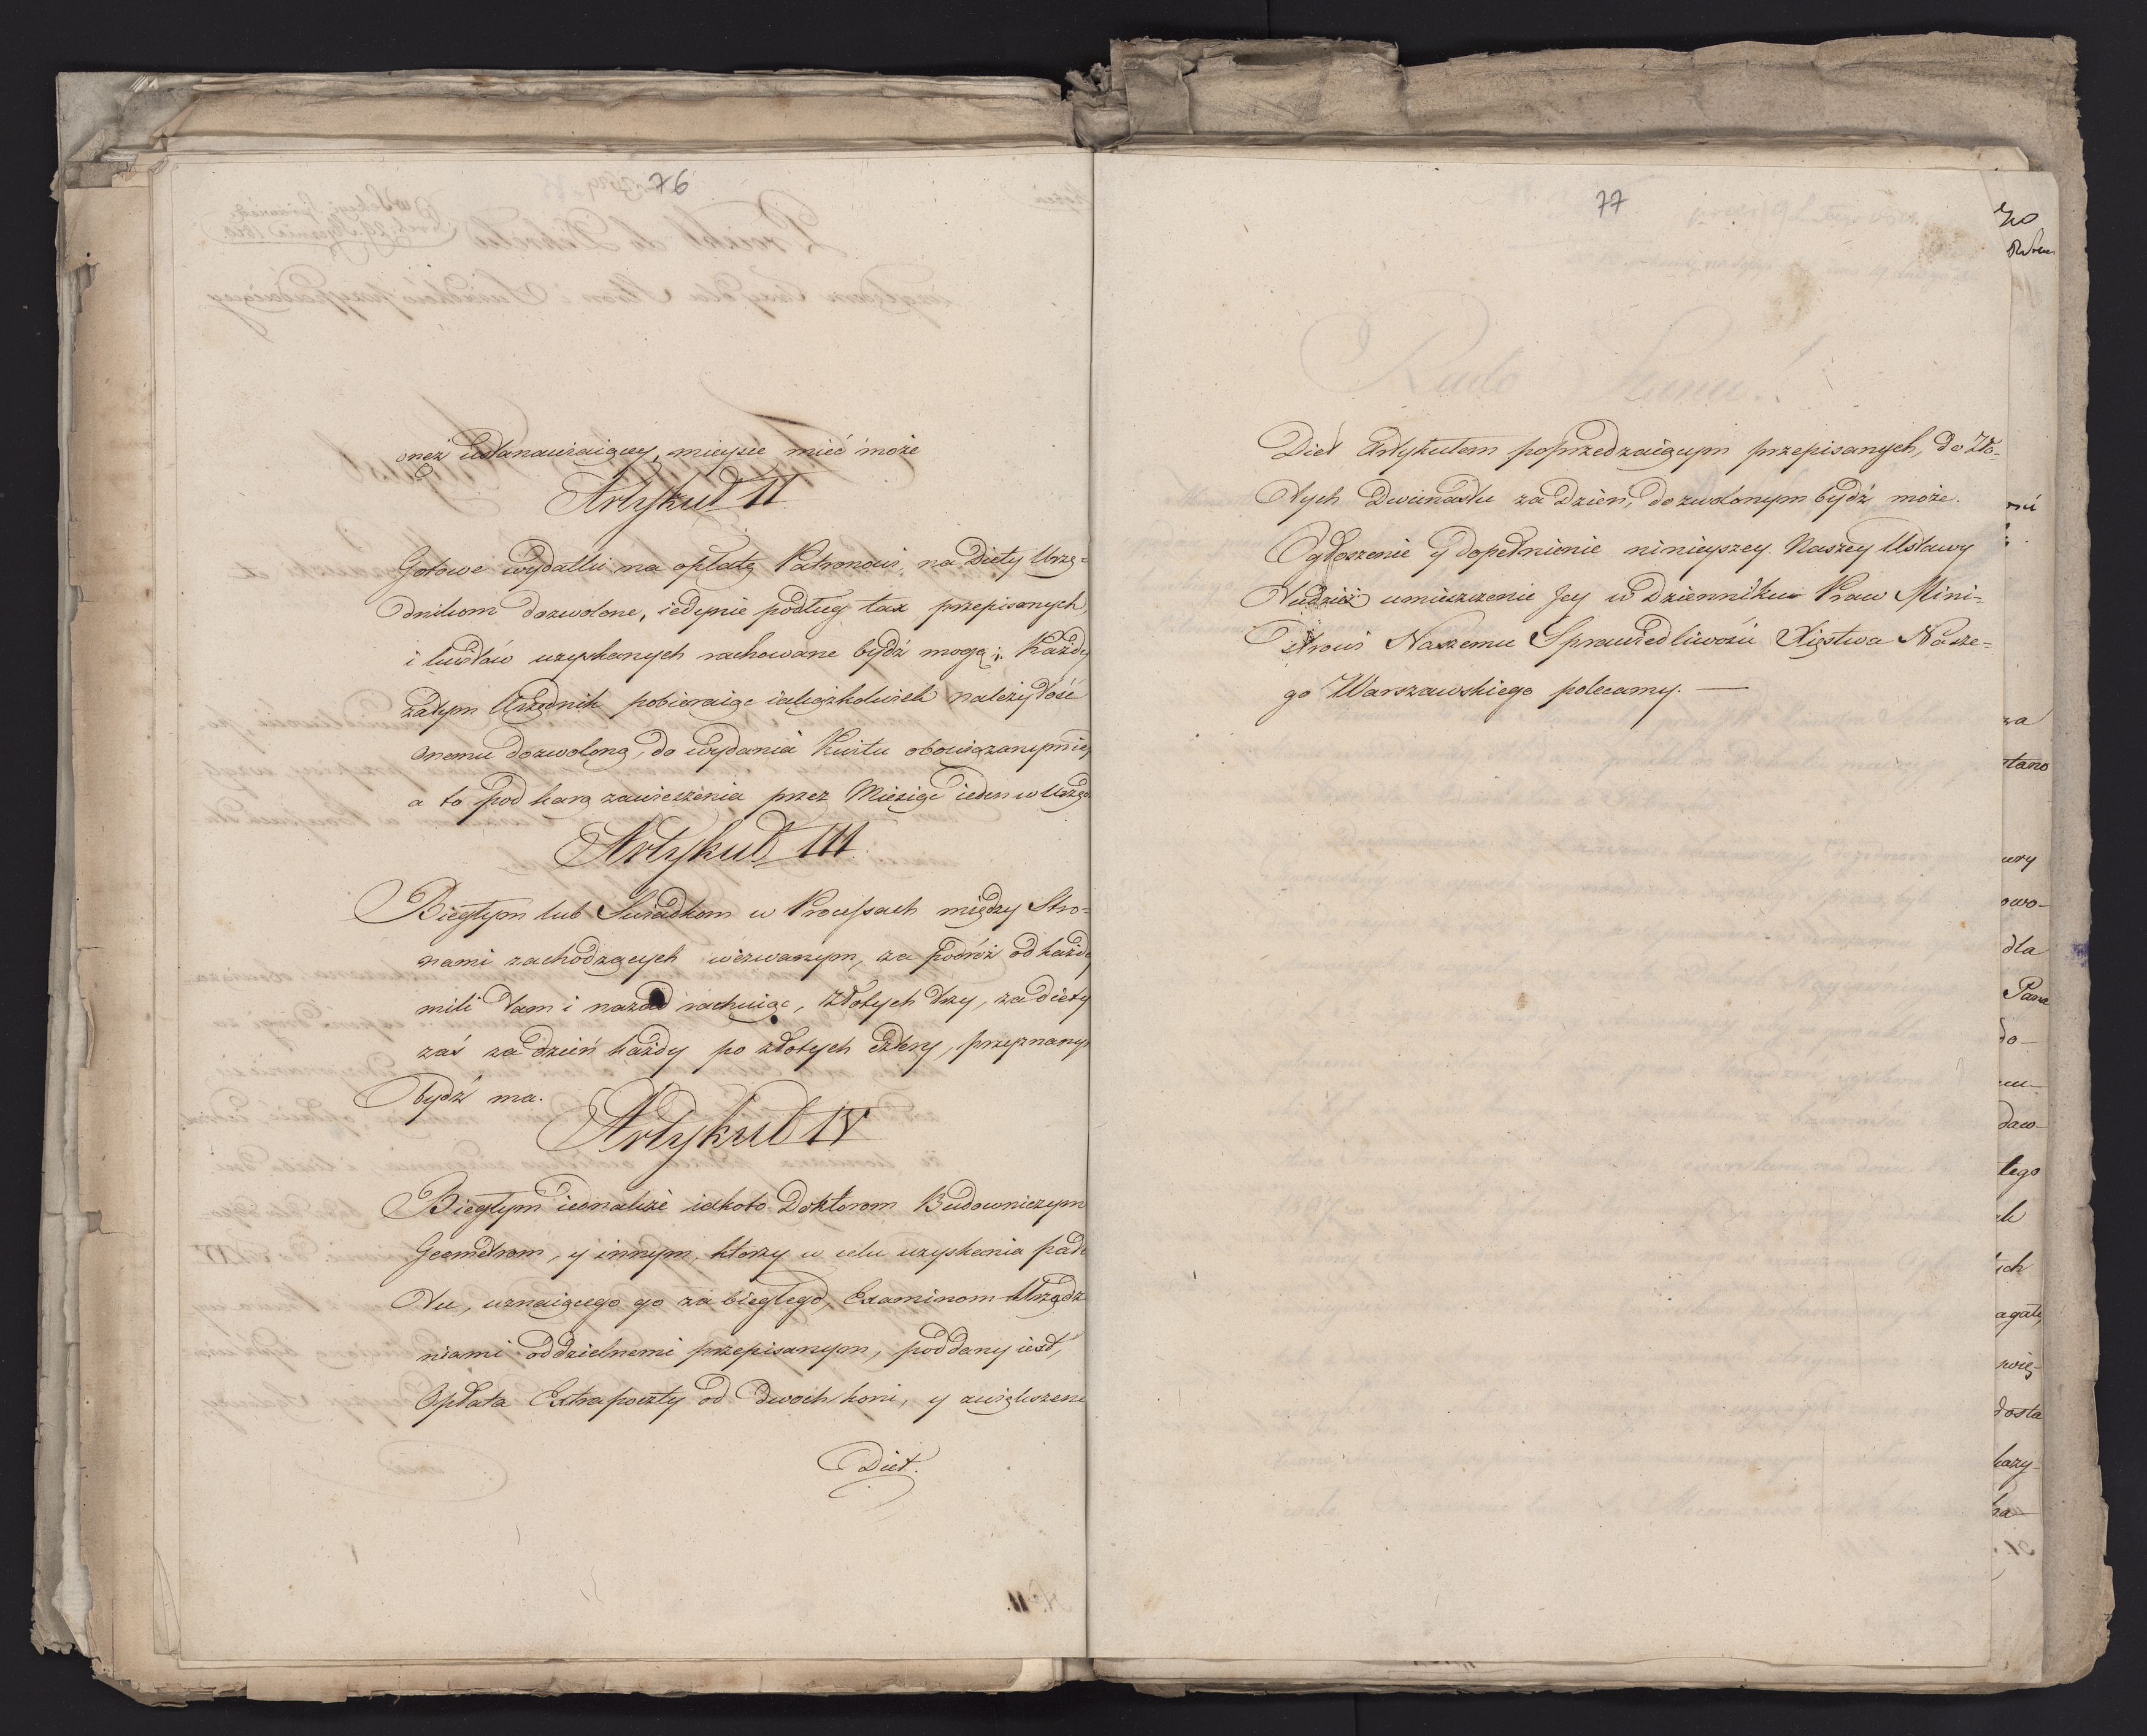 76
onez ustanawiaiącey, mieysce mieć może
Artykuł II
Gotowe wydatki na opłatę Patronowi, na Diety Urzę-
dnikom dozwolone, iedynie podług tax przepisanych
i kwitów uzyskanych rachowane bydź mogą; Każdy
zatym Urzędnik pobieraiąc iakążkolwiek należytość
onemu dozwoloną, do wydania Kwitu obowiązanym iest
a to pod karą zawieszenia przez Miesiąc ieden w Urzę
Artykuł III
Biegłym lub Swiadkom w Processach między Stro-
nami zachodzących wezwanym, za podróż od każdey
mili tam i nazad rachuiąc, Złotych trzy, za diety
zaś za dzień każdy po złotych cztery, przyznanym
bydź ma.
Artykuł IV
Biegłym iednakże iakoto Doktorom Budowniczym
Geometrom, y innym, ktorzy w celu uzyskania pate
ntu, uznaiącego go za biegłego, Examinom Urządze
niami oddzielnemi przepisanym, poddany iest,
Opłata Extrapoczty od dwoch koni, y zwiększeni
Diet.
77
Diet Artykułem poprzedzaiącym przepisanych, do Zło-
tych Dwunastu za Dzień, dozwolonym bydź może.
Ogłoszenie y dopełnienie ninieyszey Naszey Ustawy
Tudzież umieszczenie Jey w Dzienniku Praw Mini-
strowi Naszemu Sprawiedliwości Xięstwa Nasze-
go Warszawskiego polecamy. —